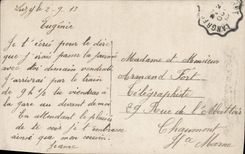 Eugénie
Je t'écris pour te dire
que j'irai passer la journée
avec toi demain vendredi
J'arriverai par le train
de 9 h ½ tu viendras à
la gare au devant de moi
En attendant le plaisir
de te voir je t'embrasse
ainsi que mon cousin
Jeanne
Madame et Monsieur
Armand Fort
Télégraphiste
29 Rue de l'Abattoir
Chaumont
Hte Marne